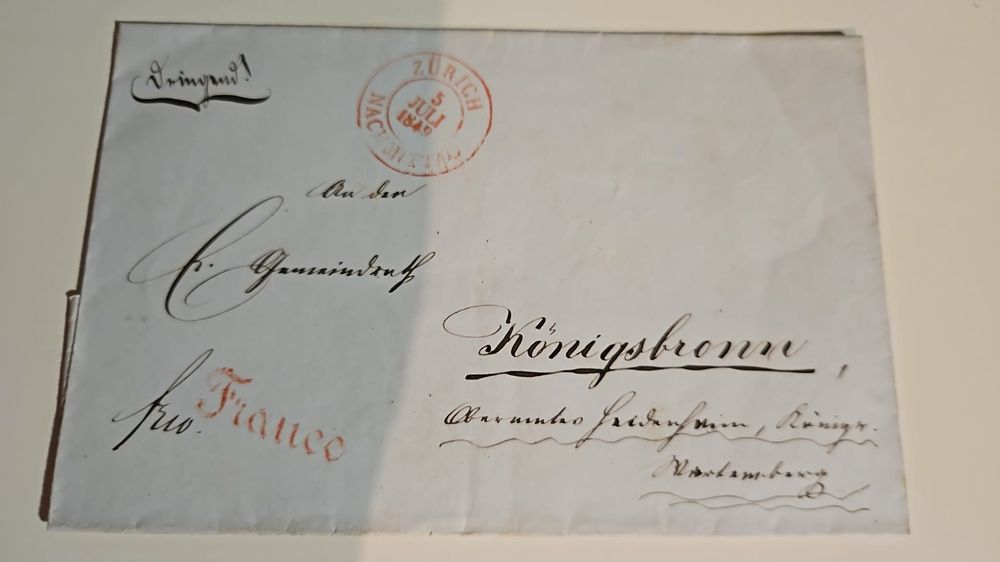 Dringend!
ZÜRICH
5
JULI
1849
NACHMITTAG
An den
E. Gemeindrath
Königsbronn,
fco. Franco
Oberamtes Heidenheim, Königr.
Würtemberg